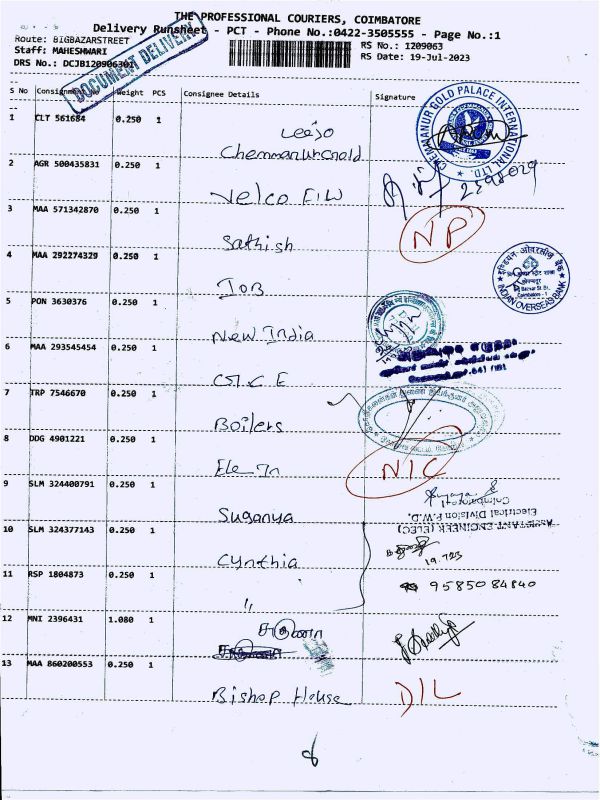 THE PROFESSIONAL COURIERS, COIMBATORE
Delivery Runsheet - PCT - Phone No.:0422-3505555 - Page No.:1
Route: BIGBAZARSTREET
RS No.: 1209063
Staff: MAHESHWARI
RS Date: 19-Jul-2023
DRS No.: DCJB120906301
DOCUMENT DELIVERY
S No Consignment No Weight PCS Consignee Details Signature
1 CLT 561684 0.250 1
Leejo
Chemmanur Gold
CHEMMANUR GOLD PALACE INTERNATIONAL LTD.
2 AGR 500435831 0.250 1
Velco E/W
2398029
3 MAA 571342870 0.250 1
Sathish
NP
4 MAA 292274329 0.250 1
IOB
इण्डियन ओवरसीज़ बैंक
INDIAN OVERSEAS BANK
Coimbatore - 1
5 PON 3630376 0.250 1
New India
6 MAA 293545454 0.250 1
641 001
7 TRP 7546670 0.250 1
Boilers
8 DDG 4901221 0.250 1
Ele In
NIC
9 SLM 324400791 0.250 1
Suganya
ASSISTANT ENGINEER (ELEC)
Electrical Division P.W.D.
Coimbatore
10 SLM 324377143 0.250 1
Cynthia
19.7.23
11 RSP 1804873 0.250 1
"
9585084840
12 MNI 2396431 1.080 1
13 MAA 860200553 0.250 1
Bishop House
D/L